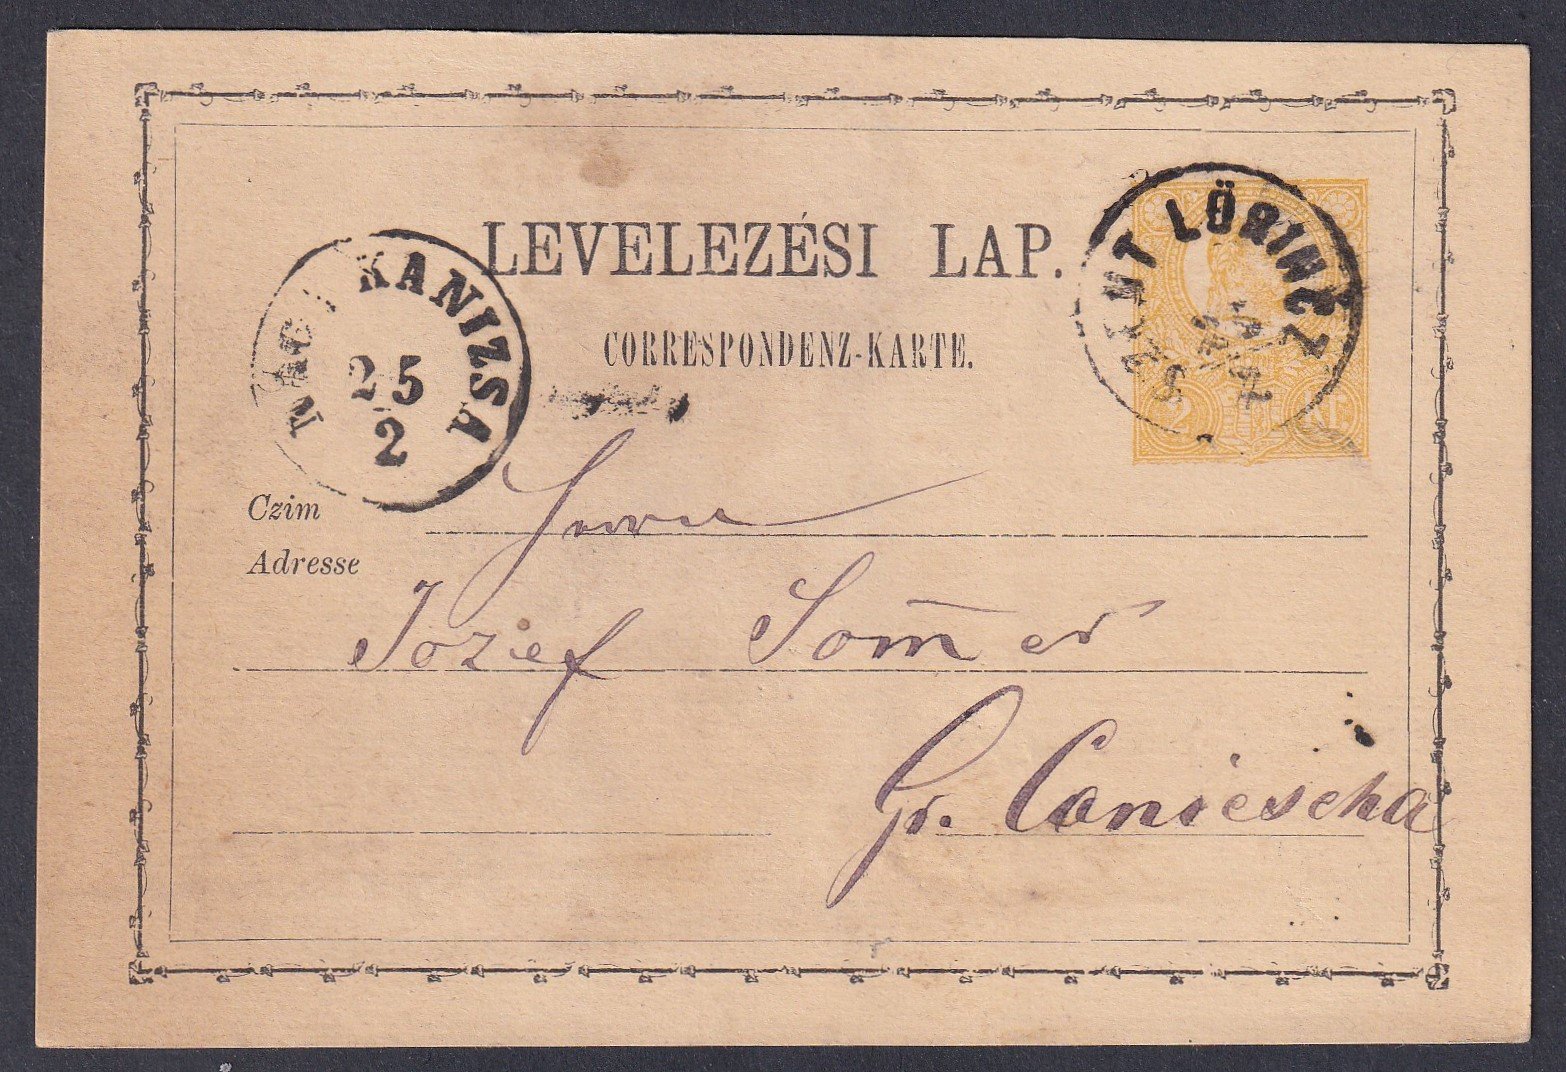 LEVELEZÉSI LAP.
CORRESPONDENZ-KARTE.
NAGY KANIZSA
25
2
SZENT LÖRINCZ
2 Kr
Czim
Adresse
Herrn
Jozef Som̄er
Gr. Caniescha